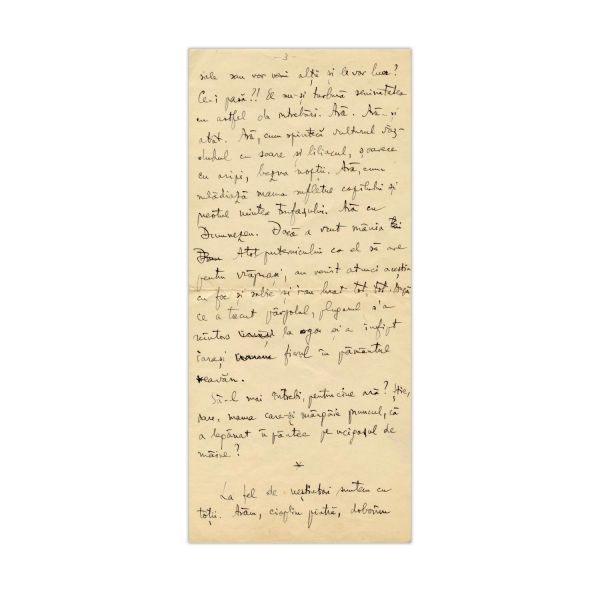 - 3 -
sale sau vor veni alții și le vor lua?
Ce-i pasă?! El nu-și turbură seninătatea
cu astfel de întrebări. Ară. Ară - și
atât. Ară, cum spintecă vulturul văz-
duhul cu soare și liliacul, șoarece
cu aripi, bezna nopții. Ară, cum
mlădiază mama sufletul copilului și
preotul mintea
Dumnezeu. Dacă a vrut mânia
Atotputernicului ca el să are
pentru vrăjmași, au venit atunci aceștia
cu foc și sabie și i-au luat tot, tot. După
ce a trecut pârjolul, plugarul s'a
întors la ogor și a înfipt
iarăși fierul în pământul
reavăn.
Să-l mai întrebi, pentru cine ară? Știe,
oare, mama care-și mângâie pruncul, că
a legănat în pântec pe ucigașul de
mâine?
*
La fel de neștiutori suntem cu
toții. Arăm, cioplim piatră, doborîm